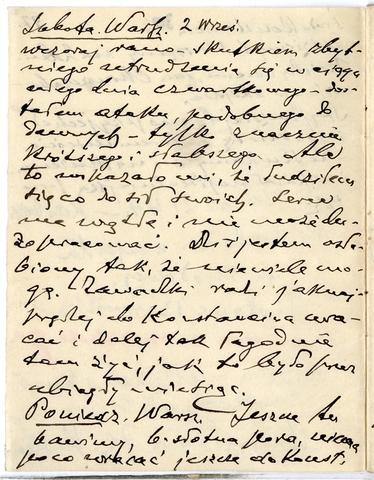 Sobota. Warsz. 2 Wrześ.
wczoraj rano - skutkiem zbyt-
niego utrudzenia się w ciągu
całego dnia czwartkowego - dos-
tałem ataku, podobnego do
dawnych - tylko znacznie
krótszego i słabszego. Ale
to wskazało mi, że łudziłem
się co do sił swoich. Serce
ma wadę i nie może du-
żo pracować. Dziś jestem osła-
biony tak, że niewiele mo-
gę. Zawadzki radzi jaknaj-
prędzej do Konstancina wra-
cać i dalej tak łagodnie
tam żyć, jak to było przez
ubiegły miesiąc.
Poniedz. Warsz. Jeszcze tu
bawimy, b. słotna pora,
poco wracać jeszcze do Konst.